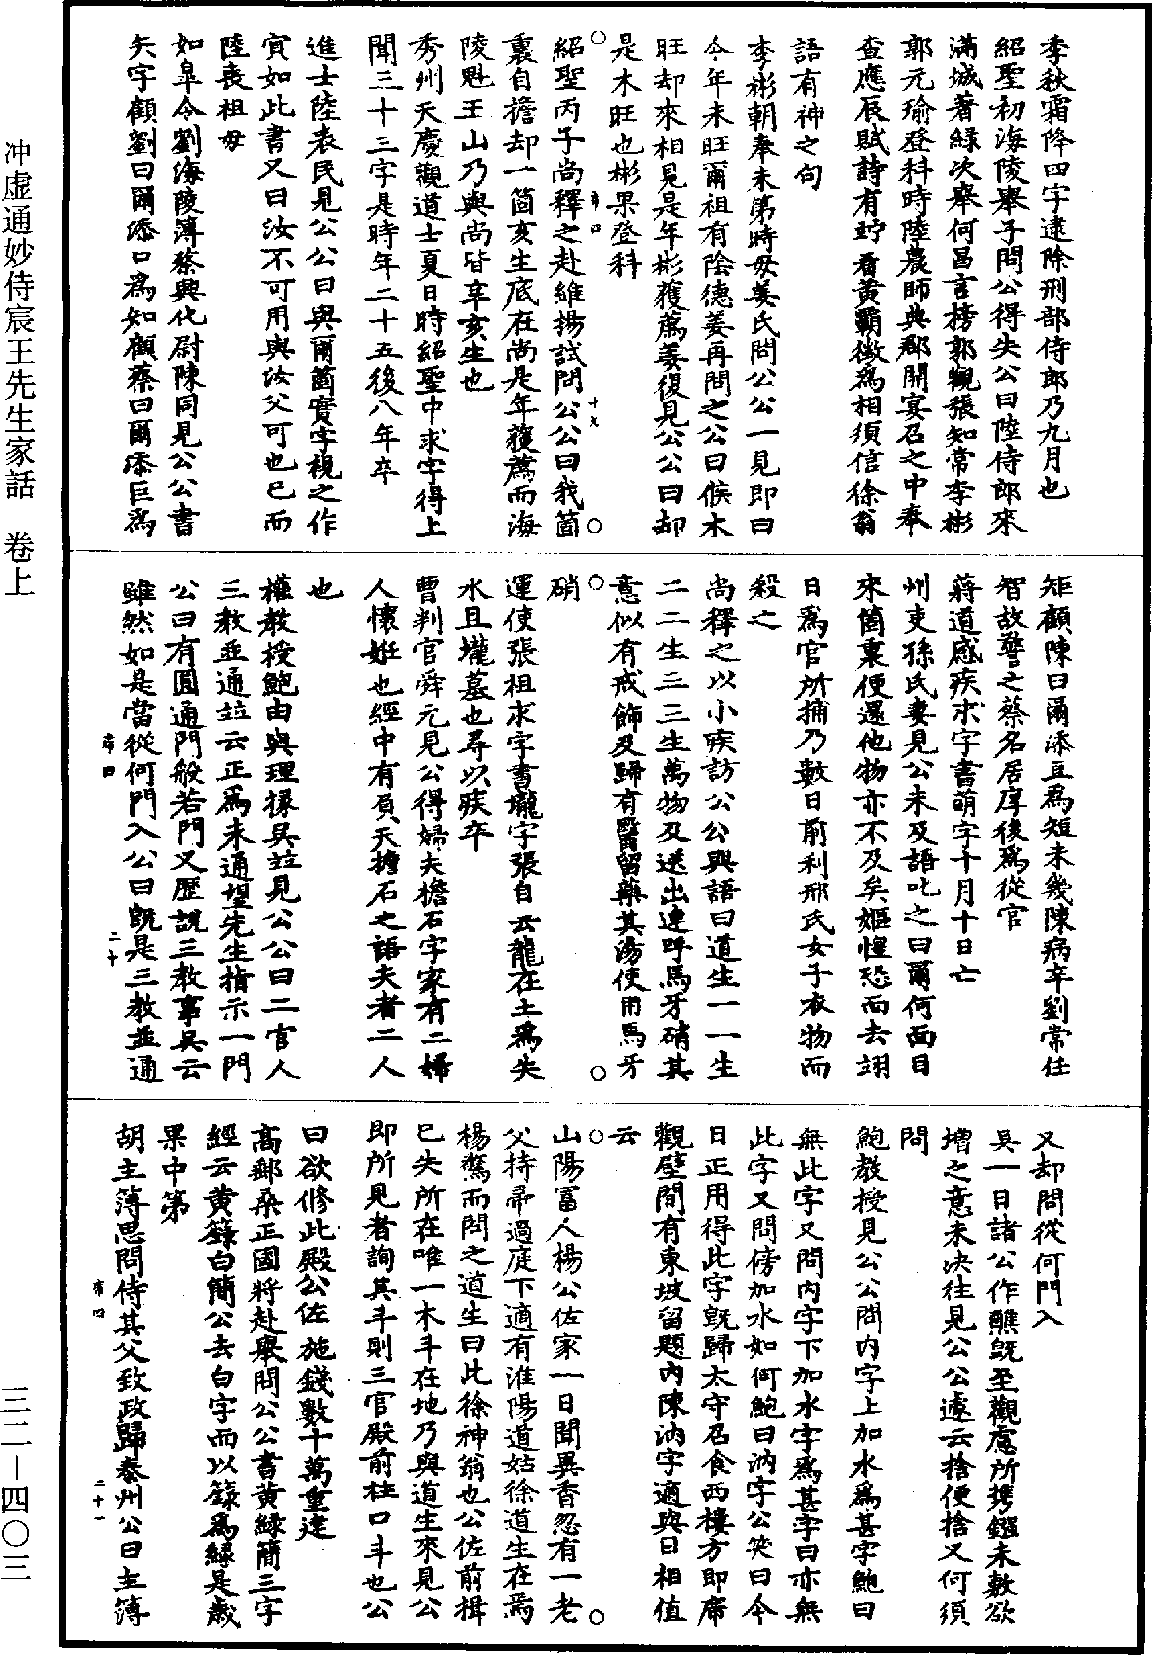 季秋霜降四字逮除刑部侍郎乃九月也
紹聖初海陵舉子問公得失公曰陸侍郎來
滿城著綠次舉何昌言榜郭觀張知常李彬
郭元瑜登科時陸農師典郡開宴召之中奉
查應辰賦詩有貯看黃霸徵為相須信徐翁
語有神之句
李彬朝奉未第時母姜氏問公公一見即曰
今年木旺爾祖有陰德姜再問之公曰候木
旺却來相見是年彬獲薦姜復見公公曰却
是木旺也彬果登科
席口
十九
紹聖丙子尚釋之赴維揚試問公公曰我箇
裏自擔却一箇亥生底在尚是年獲薦而海
陵魁王山乃與尚皆辛亥生也
秀州天慶觀道士夏日時紹聖中求字得上
聞三十三字是時年二十五後八年卒
進士陸表民見公公曰與爾箇實字視之作
寅如此書又曰汝不可用與汝父可也已而
陸喪祖母
如皐令劉海陵薄蔡興化尉陳同見公公書
矢字顧劉曰爾添口為知顧蔡曰爾添巨為
矩顧陳曰爾添豆為短未幾陳病卒劉常任
智故警之蔡名居厚後為從官
蔣道感疾求字書萌字十月十日亡
州吏孫氏妻見公未及語叱之曰爾何面目
來箇裏便還他物亦不及矣嫗惶恐而去翊
日為官所捕乃數日前利邢氏女子衣物而
殺之
尚釋之以小疾訪公公與語曰道生一一生
二二生三三生萬物及送出連呼馬牙硝其
意似有戒飾及歸有醫留藥其湯使用馬牙
硝
運使張祖求字書壠字張自云龍在土為失
水且壠墓也尋以疾卒
曹判官舜元見公得婦夫檐石字家有二婦
人懷姙也經中有負天擔石之語夫者二人
也
權教授鮑由與理掾吳竝見公公曰二官人
三教並通竝云正為未通望先生指示一門
公曰有圓通門般若門又歷說三教事吳云
雖然如是當從何門入公曰既是三教並通
席口
二十
又却問從何門入
吳一日諸公作醮既至觀慮所携鏹未敷欲
增之意未決往見公公遽云捨便捨又何須
問
鮑教授見公公問內字上加水為甚字鮑曰
無此字又問內字下加水字為甚字曰亦無
此字又問傍加水如何鮑曰汭字公笑曰今
日正用得此字既歸太守召食西樓方即席
觀壁間有東坡留題內陳汭字適與日相值
云
山陽富人楊公佐家一日聞異香忽有一老
父持帚過庭下適有淮陽道姑徐道生在焉
楊驚而問之道生曰此徐神翁也公佐前揖
已失所在唯一木斗在地乃與道生來見公
即所見者詢其斗則三官殿前柱口斗也公
曰欲修此殿公佐施錢數十萬重建
高郵桑正國將赴舉問公公書黃綠簡三字
經云黃籙白簡公去白字而以籙為綠是歲
果中第
胡主簿思問侍其父致政歸泰州公曰主簿
席口
二十一
冲虛通妙侍宸王先生家話 卷上
三二—四〇三